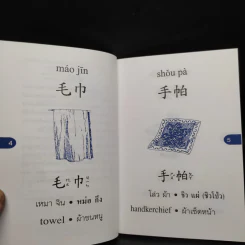 máo jīn
毛巾
4
毛巾
เหมา จิน • หม่อ กึ๊ง
towel • ผ้าขนหนู
shǒu pà
手帕
5
手帕
โส่ว ผ้า •
handkerchief • ผ้าเช็ดหน้า